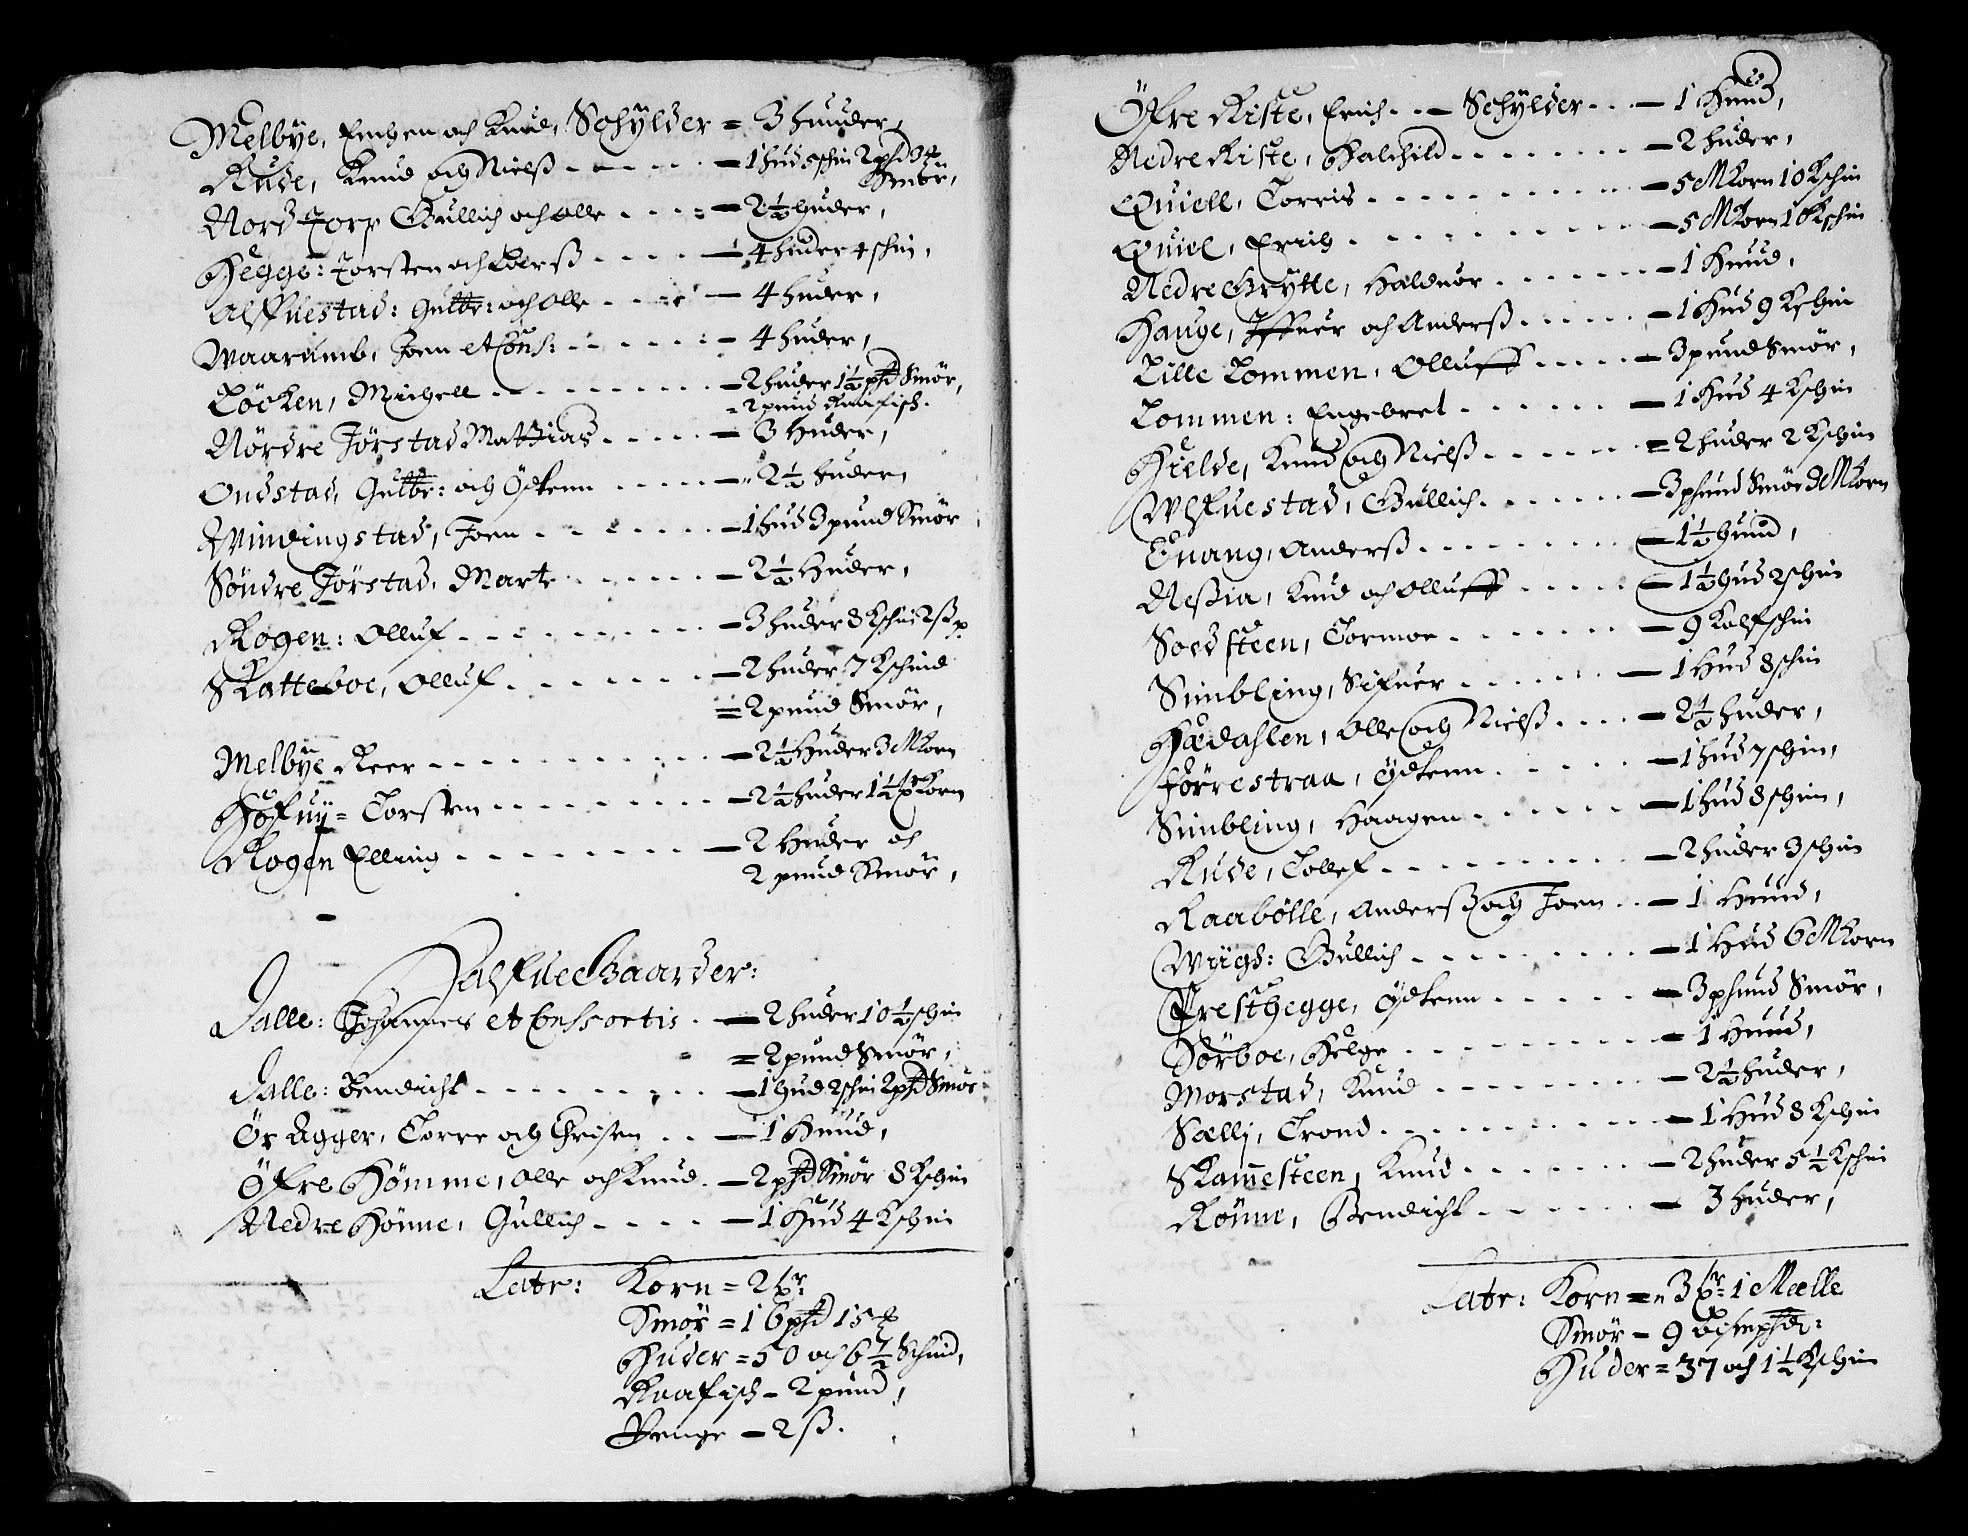 Melbye, Engen och Knud, Schylder = 3 huuder,
Rude, Knud och Nielß - - - - - 1 hud 5 schin 2 pfd 3 #
Smör,
Nord Torp Gullich och Olle - - - - 2½ huder,
Hegge: Torsten och Larß - - - - - 4 huder 4 schin,
Alffuestad: Gutte: och Olle - - - - 4 huder,
Waarumb, Joen et Cons: - - - - - 4 huder,
Löcken, Michell - - - - - - - 2 huder 1½ pfd Smör,
= 2 pund Raafisch.
Nördre Jörstad Mathias - - - - - 3 Huder,
Ondstad, Gutte: och Östenn - - - - 2½ huder,
Windingstad, Joen - - - - - 1 hud 3 pund Smör
Söndre Jörstad, Marte - - - - - 2½ Huder,
Rogen: Olluf - - - - - - - 3 huder 8 Kschin 2 ß p
Skatteboe, Olluf - - - - - - - 2 huder 7 Kschind
= 2 pund Smör,
Melbÿe Reer - - - - - - - - 2½ Huder 3 M Korn
Höfuÿ = Torsten - - - - - - - - 2½ huder 1½ tr Korn
Rogen Elling - - - - - - - - 2 Huder och
2 pund Smör,
Halfuee Gaarder:
Dalle: Johannes et Consortis - 2 huder 10½ schin
= 2 pund Smör,
Dalle: Bendicht - - - - - - - 1 hud 2 schin 2 pfd Smör
Ör Agger, Torre och Christen - - 1 Huud,
Öfre Hömme, Olle och Knud - 2 pfd Smör 8 Kschin
Nedre Hönne, Gullich - - - - - 1 Hud 4 Kschin
Latr: Korn = 2 tr:
Smör = 16 pfd 15 #
Huder = 50 och 6½ Schind,
Raafisch - 2 pund,
Penge - 2 ß.
Öfre Riste, Erich - - Schylder - - 1 Huud,
Nedre Riste, Halchild - - - - - - - 2 huder,
Quiell, Torris - - - - - - - - - 5 M Korn 10 Kschin
Quiel, Erich - - - - - - - - - 5 M Korn 10 Kschin
Nedre Grytte, Halduor - - - - - - 1 Huud,
Hauge, Iffuer och Anderß - - - - - 1 Hud 9 Kschin
Lille Lommen, Olluff - - - - - 3 pund Smör,
Lommen: Engebret - - - - - - 1 Hud 4 Kschin
Hielde, Knud och Nielß - - - - - = 2 huder 2 Kschin
Wlfuestad, Gullich - - - - - - 3 phund Smör 3 M Korn
Quang, Anderß - - - - - - - - 1½ huud,
Neßia, Knud och Olluff - - - - - 1½ hud 2 schin
Soedsteen, Tormoe - - - - - - 9 Kalfschin
Simbling, Sifuer - - - - - - 1 Hud 8 schin
Hædahlen, Olle och Nielß - - - - 2½ huder,
Förrestraa, Östenn - - - - - 1 hud 7 schin,
Simbling, Haagen - - - - - - 1 hud 8 schin,
Rude, Tollef - - - - - - - - 2 huder 3 schin
Raabölle, Anderß och Joen - - 1 Huud,
Wÿgd: Gullich - - - - - - - - 1 Hud 6 M Korn
Presthegge, Östenn - - - - - - 3 phund Smör,
Sörboe, Helge - - - - - - - - 1 Huud,
Morstad, Knud - - - - - - - - 2½ huder,
Sælli, Trond - - - - - - - - - 1 Hud 8 Kschin
Skamesteen, Knud - - - - - - - 2 huder 5½ Kschin
Rönne, Bendicht - - - - - - - 3 huder,
Latr: Korn = 3 tr 1 Mælle
Smör - 9 Bismpfd:
Huder = 37 och 1½ Kschin